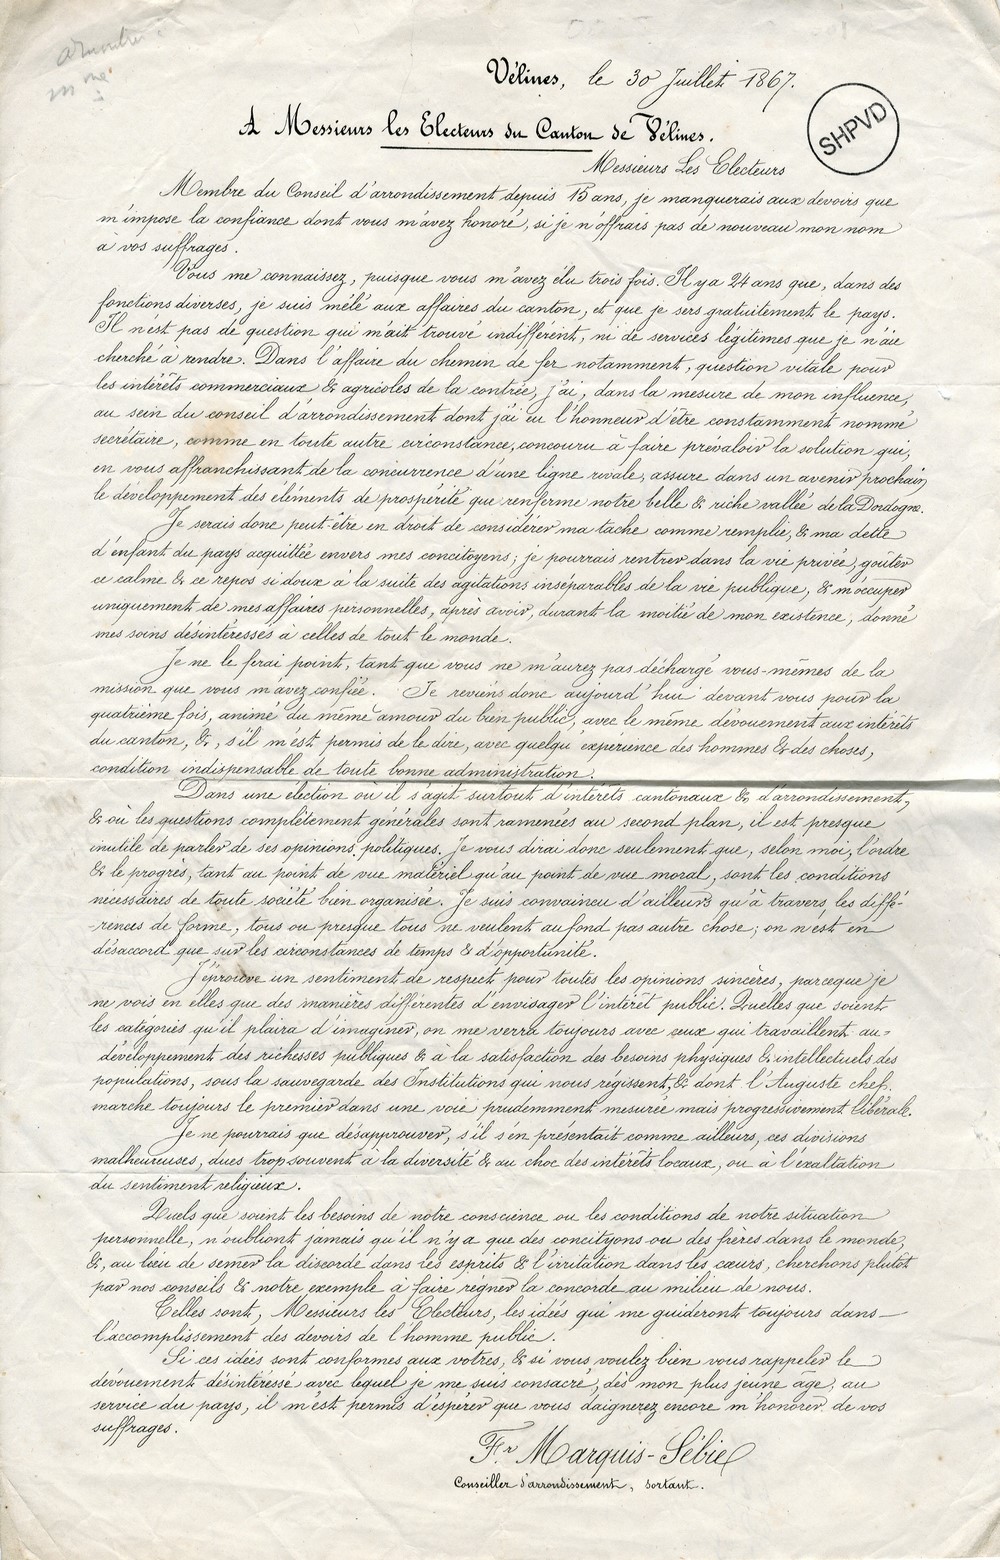 Vélines, le 30 Juillet 1867.
SHPVD
A Messieurs les Electeurs du Canton de Vélines.
Messieurs Les Electeurs
Membre du Conseil d'arrondissement depuis 15 ans, je manquerais aux devoirs que
m'impose la confiance dont vous m'avez honoré, si je n'offrais pas de nouveau mon nom
à vos suffrages.
Vous me connaissez, puisque vous m'avez élu trois fois. Il y a 24 ans que, dans des
fonctions diverses, je suis mêlé aux affaires du canton, et que je sers gratuitement le pays.
Il n'est pas de question qui m'ait trouvé indifférent, ni de services légitimes que je n'aie
cherché à rendre. Dans l'affaire du chemin de fer notamment, question vitale pour
les intérêts commerciaux & agricoles de la contrée, j'ai, dans la mesure de mon influence,
au sein du conseil d'arrondissement dont j'ai eu l'honneur d'être constamment nommé
secrétaire, comme en toute autre circonstance, concouru à faire prévaloir la solution qui,
en vous affranchissant de la concurrence d'une ligne rivale, assure dans un avenir prochain
le développement des éléments de prospérité que renferme notre belle & riche vallée de la Dordogne.
Je serais donc peut-être en droit de considérer ma tache comme remplie, & ma dette
d'enfant du pays acquittée envers mes concitoyens; je pourrais rentrer dans la vie privée, goûter
ce calme & ce repos si doux à la suite des agitations inséparables de la vie publique, & m'occuper
uniquement de mes affaires personnelles, après avoir, durant la moitié de mon existence, donné
mes soins désintéressés à celles de tout le monde.
Je ne le ferai point, tant que vous ne m'aurez pas déchargé vous-mêmes de la
mission que vous m'avez confiée. Je reviens donc aujourd'hui devant vous pour la
quatrième fois, animé du même amour du bien public, avec le même dévouement aux intérêts
du canton, &, s'il m'est permis de le dire, avec quelqu'expérience des hommes & des choses,
condition indispensable de toute bonne administration.
Dans une élection où il s'agit surtout d'intérêts cantonaux & d'arrondissement,
& où les questions complètement générales sont ramenées au second plan, il est presque
inutile de parler de ses opinions politiques. Je vous dirai donc seulement que, selon moi, l'ordre
& le progrès, tant au point de vue matériel qu'au point de vue moral, sont les conditions
nécessaires de toute société bien organisée. Je suis convaincu d'ailleurs qu'à travers les diffé-
-rences de forme, tous ou presque tous ne veulent au fond pas autre chose; on n'est en
désaccord que sur les circonstances de temps & d'opportunité.
J'éprouve un sentiment de respect pour toutes les opinions sincères, parceque je
ne vois en elles que des manières différentes d'envisager l'intérêt public. Quelles que soient
les catégories qu'il plaira d'imaginer, on me verra toujours avec ceux qui travaillent au-
développement des richesses publiques & à la satisfaction des besoins physiques & intellectuels des
populations, sous la sauvegarde des Institutions qui nous régissent, & dont l'Auguste chef
marche toujours le premier dans une voie prudemment mesurée mais progressivement libérale.
Je ne pourrais que désapprouver, s'il s'en présentait comme ailleurs, ces divisions
malheureuses, dues trop souvent à la diversité & au choc des intérêts locaux, ou à l'exaltation
du sentiment religieux.
Quels que soient les besoins de notre conscience ou les conditions de notre situation
personnelle, n'oublions jamais qu'il n'y a que des concityons ou des frères dans le monde,
&, au lieu de semer la discorde dans les esprits & l'irritation dans les cœurs, cherchons plutôt
par nos conseils & notre exemple à faire régner la concorde au milieu de nous.
Telles sont, Messieurs les Electeurs, les idées qui me guideront toujours dans
l'accomplissement des devoirs de l'homme public.
Si ces idées sont conformes aux votres, & si vous voulez bien vous rappeler le
dévouement désintéressé avec lequel je me suis consacré, dès mon plus jeune age, au
service du pays, il m'est permis d'espérer que vous daignerez encore m'honorer de vos
suffrages.
Fr. Marquis-Sébie
Conseiller d'arrondissement, sortant.